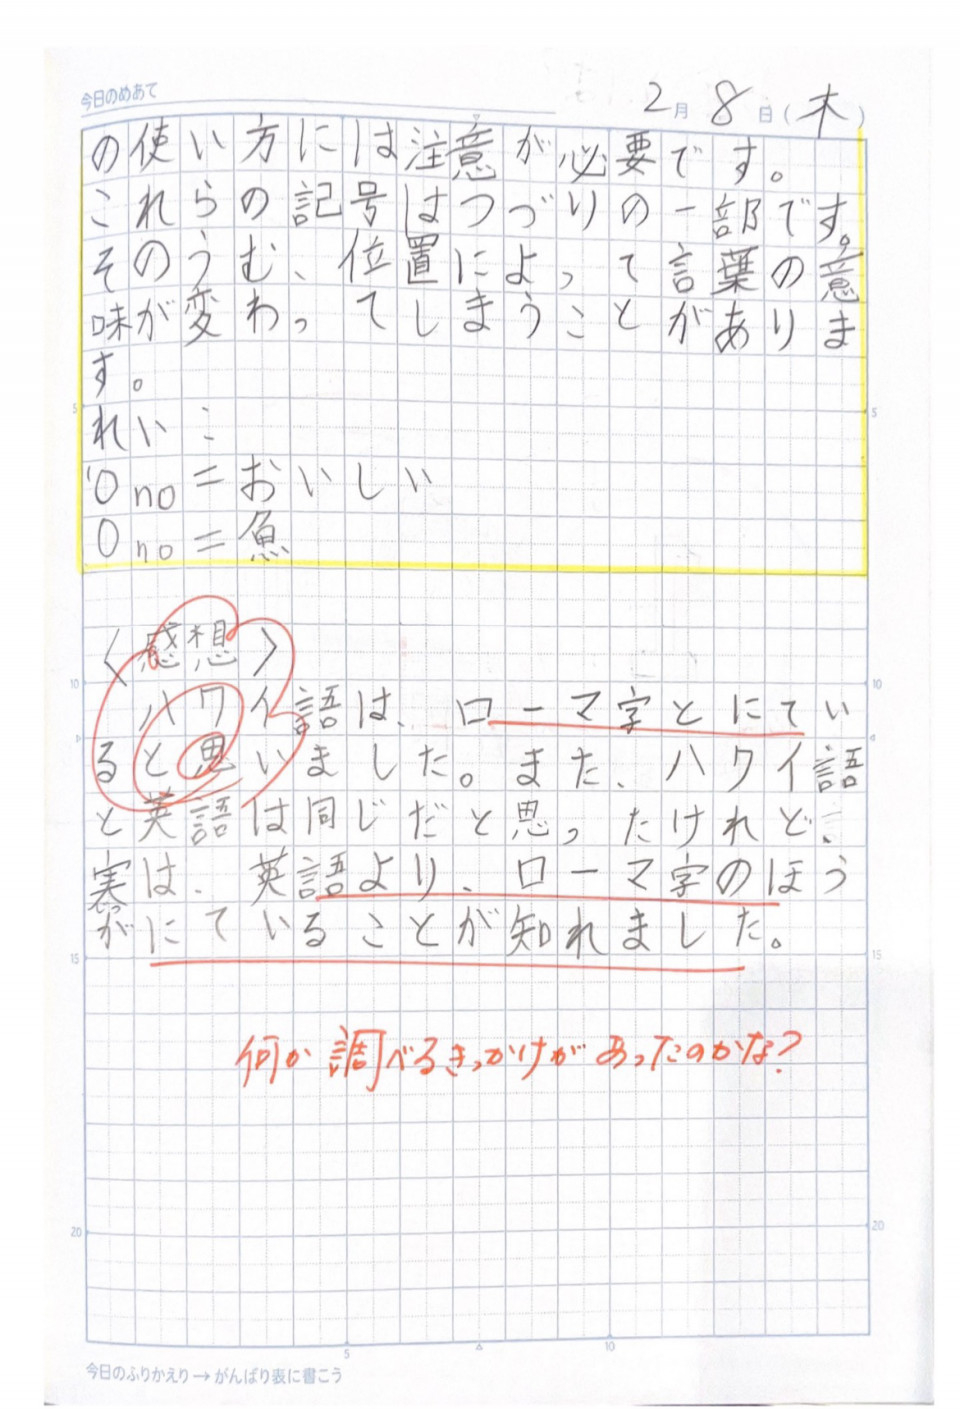 今日のめあて
2月8日(木)
の使い方には注意が必要です。
これらの記号はつづりの一部です。
そのうむ、位置によって言葉の意
味が変わってしまうことがありま
す。
れい：
'Ono=おいしい
Ono=魚
〈感想〉
ハワイ語は、ローマ字とにてい
ると思いました。また、ハワイ語
と英語は同じだと思ったけれど、
実は、英語より、ローマ字のほう
がにていることが知れました。
何か調べるきっかけがあったのかな?
5
10
15
20
5
10
15
20
5
10
今日のふりかえり→がんばり表に書こう